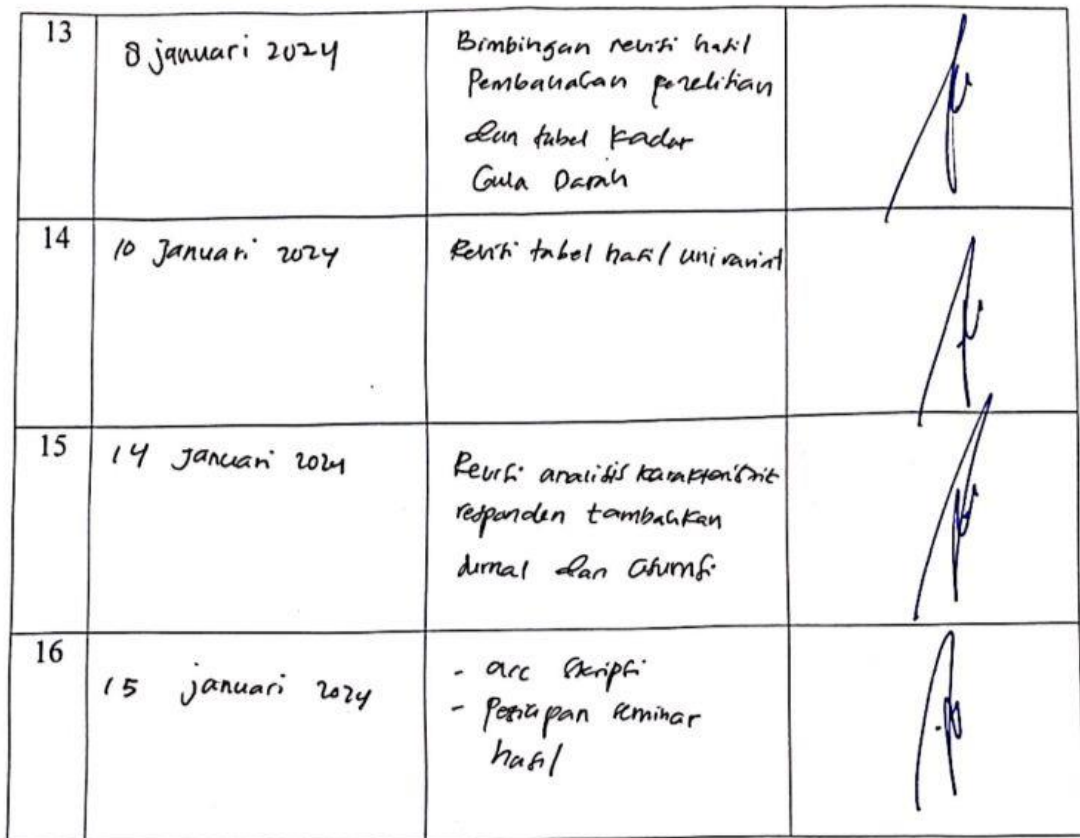 13
8 januari 2024
Bimbingan revisi hasil
Pembahasan penelitian
dan tabel kadar
Gula Darah
14
10 Januari 2024
Revisi tabel hasil univariat
15
14 Januari 2024
Revisi analisis karakteristik
responden tambahkan
jurnal dan asumsi
16
15 januari 2024
- acc skripsi
- Persiapan seminar
hasil